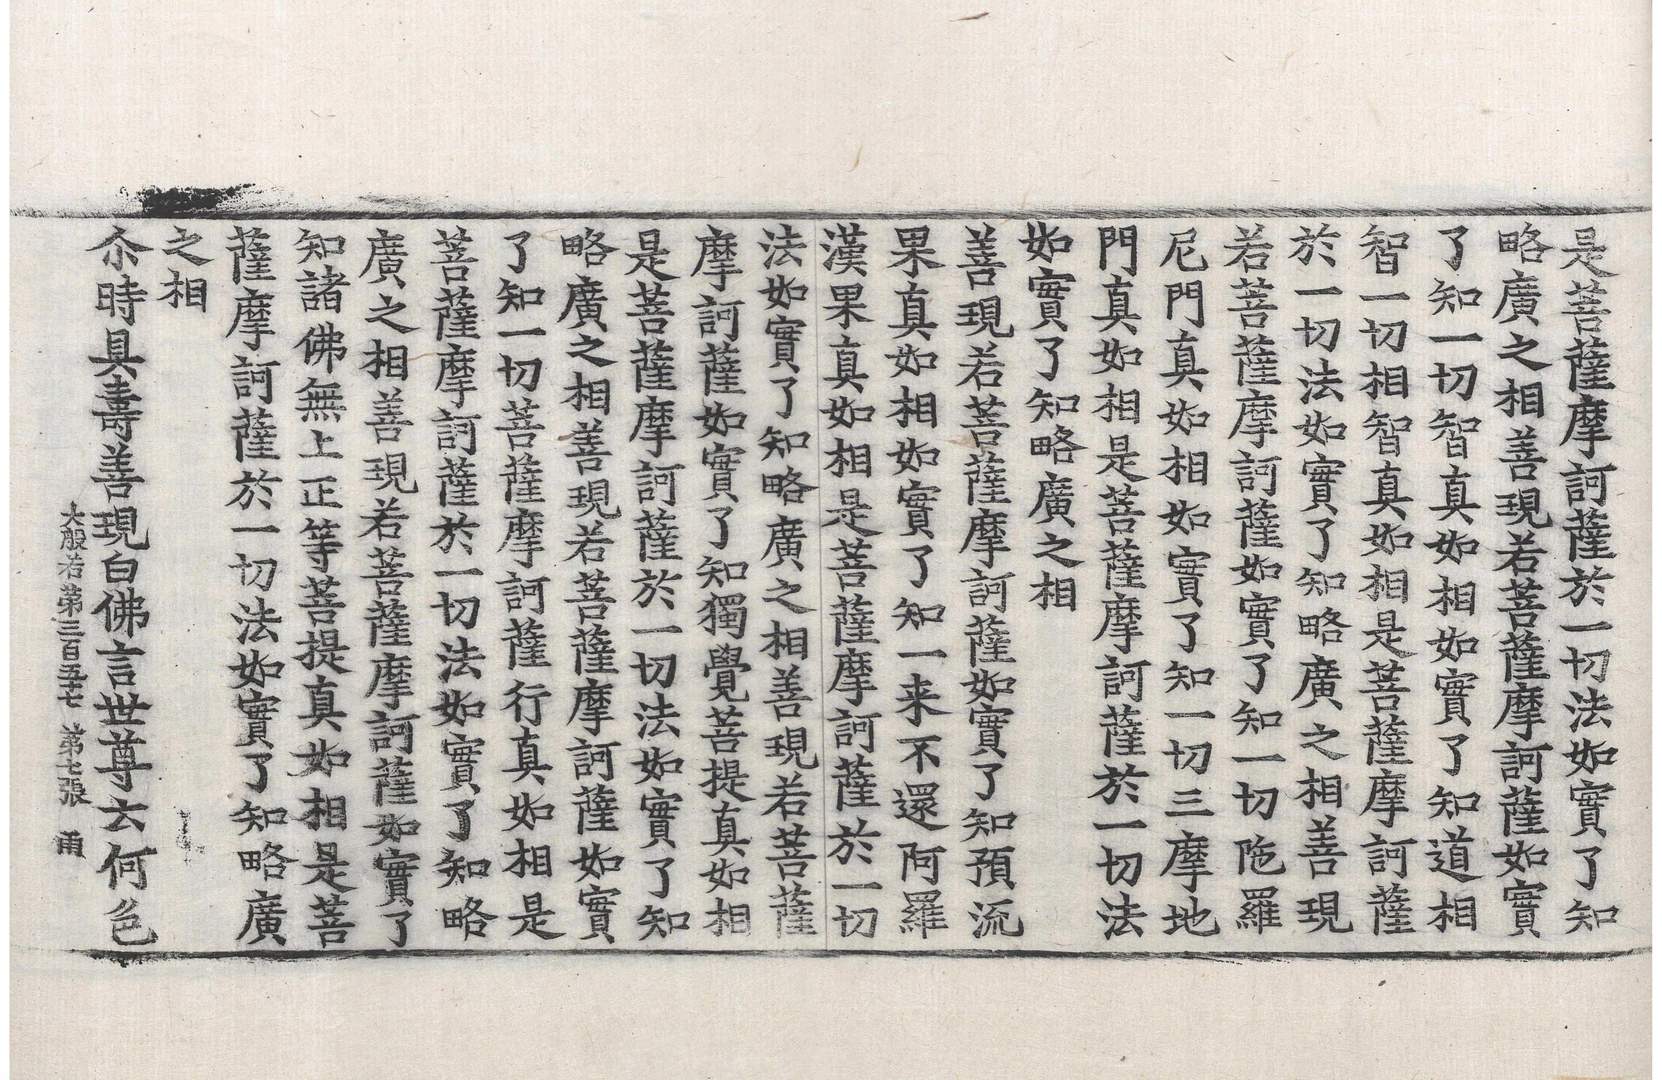 是菩薩摩訶薩於一切法如實了知
略廣之相善現若菩薩摩訶薩如實
了知一切智真如相如實了知道相
智一切相智真如相是菩薩摩訶薩
於一切法如實了知略廣之相善現
若菩薩摩訶薩如實了知一切陁羅
尼門真如相如實了知一切三摩地
門真如相是菩薩摩訶薩於一切法
如實了知略廣之相
善現若菩薩摩訶薩如實了知預流
果真如相如實了知一来不還阿羅
漢果真如相是菩薩摩訶薩於一切
法如實了知略廣之相善現若菩薩
摩訶薩如實了知獨覺菩提真如相
是菩薩摩訶薩於一切法如實了知
略廣之相善現若菩薩摩訶薩如實
了知一切菩薩摩訶薩行真如相是
菩薩摩訶薩於一切法如實了知略
廣之相善現若菩薩摩訶薩如實了
知諸佛無上正等菩提真如相是菩
薩摩訶薩於一切法如實了知略廣
之相
尒時具壽善現白佛言世尊云何色
大般若第三百五十七 第七張 雨